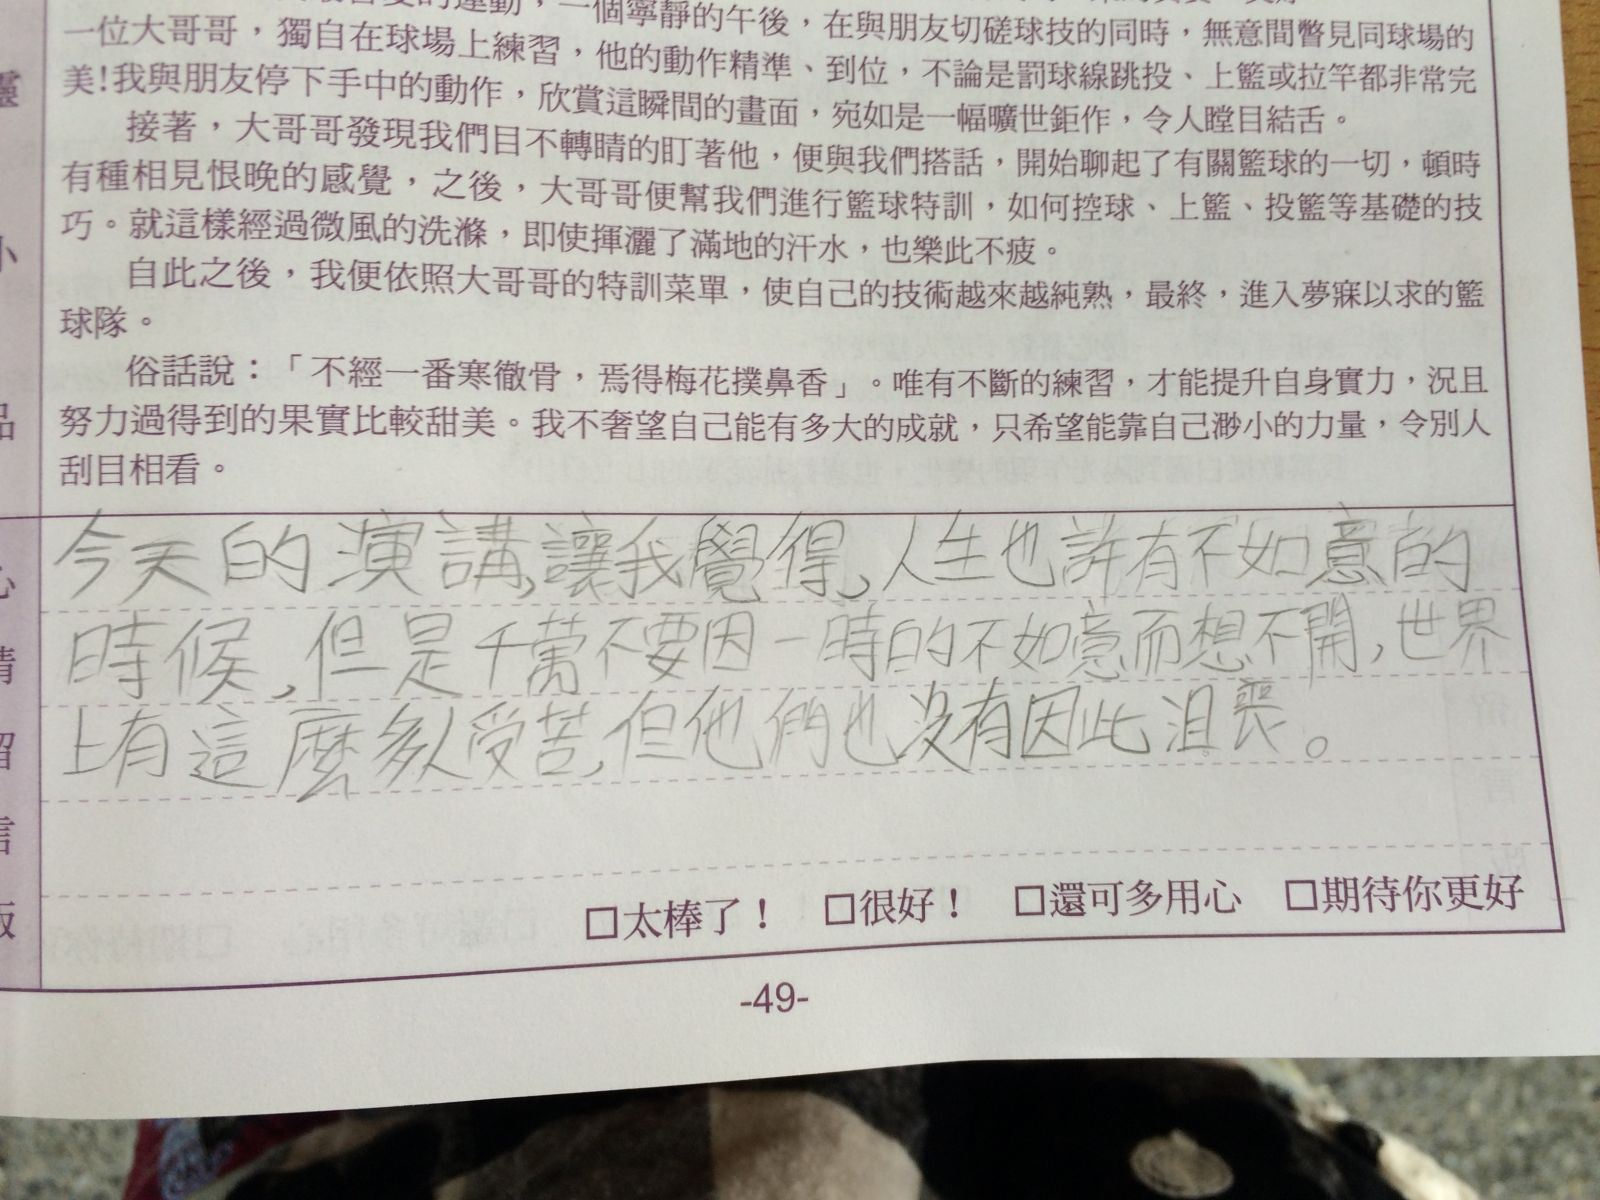 一個寧靜的午後，在與朋友切磋球技的同時，無意間瞥見同球場的
一位大哥哥，獨自在球場上練習，他的動作精準、到位，不論是罰球線跳投、上籃或拉竿都非常完
美!我與朋友停下手中的動作，欣賞這瞬間的畫面，宛如是一幅曠世鉅作，令人瞠目結舌。
接著，大哥哥發現我們目不轉睛的盯著他，便與我們搭話，開始聊起了有關籃球的一切，頓時
有種相見恨晚的感覺，之後，大哥哥便幫我們進行籃球特訓，如何控球、上籃、投籃等基礎的技
巧。就這樣經過微風的洗滌，即使揮灑了滿地的汗水，也樂此不疲。
自此之後，我便依照大哥哥的特訓菜單，使自己的技術越來越純熟，最終，進入夢寐以求的籃
球隊。
俗話說：「不經一番寒徹骨，焉得梅花撲鼻香」。唯有不斷的練習，才能提升自身實力，況且
努力過得到的果實比較甜美。我不奢望自己能有多大的成就，只希望能靠自己渺小的力量，令別人
刮目相看。
今天的演講,讓我覺得,人生也許有不如意的
時候,但是千萬不要因一時的不如意而想不開,世界
上有這麼多人受苦,但他們也沒有因此沮喪。
□太棒了！ □很好！ □還可多用心 □期待你更好
-49-